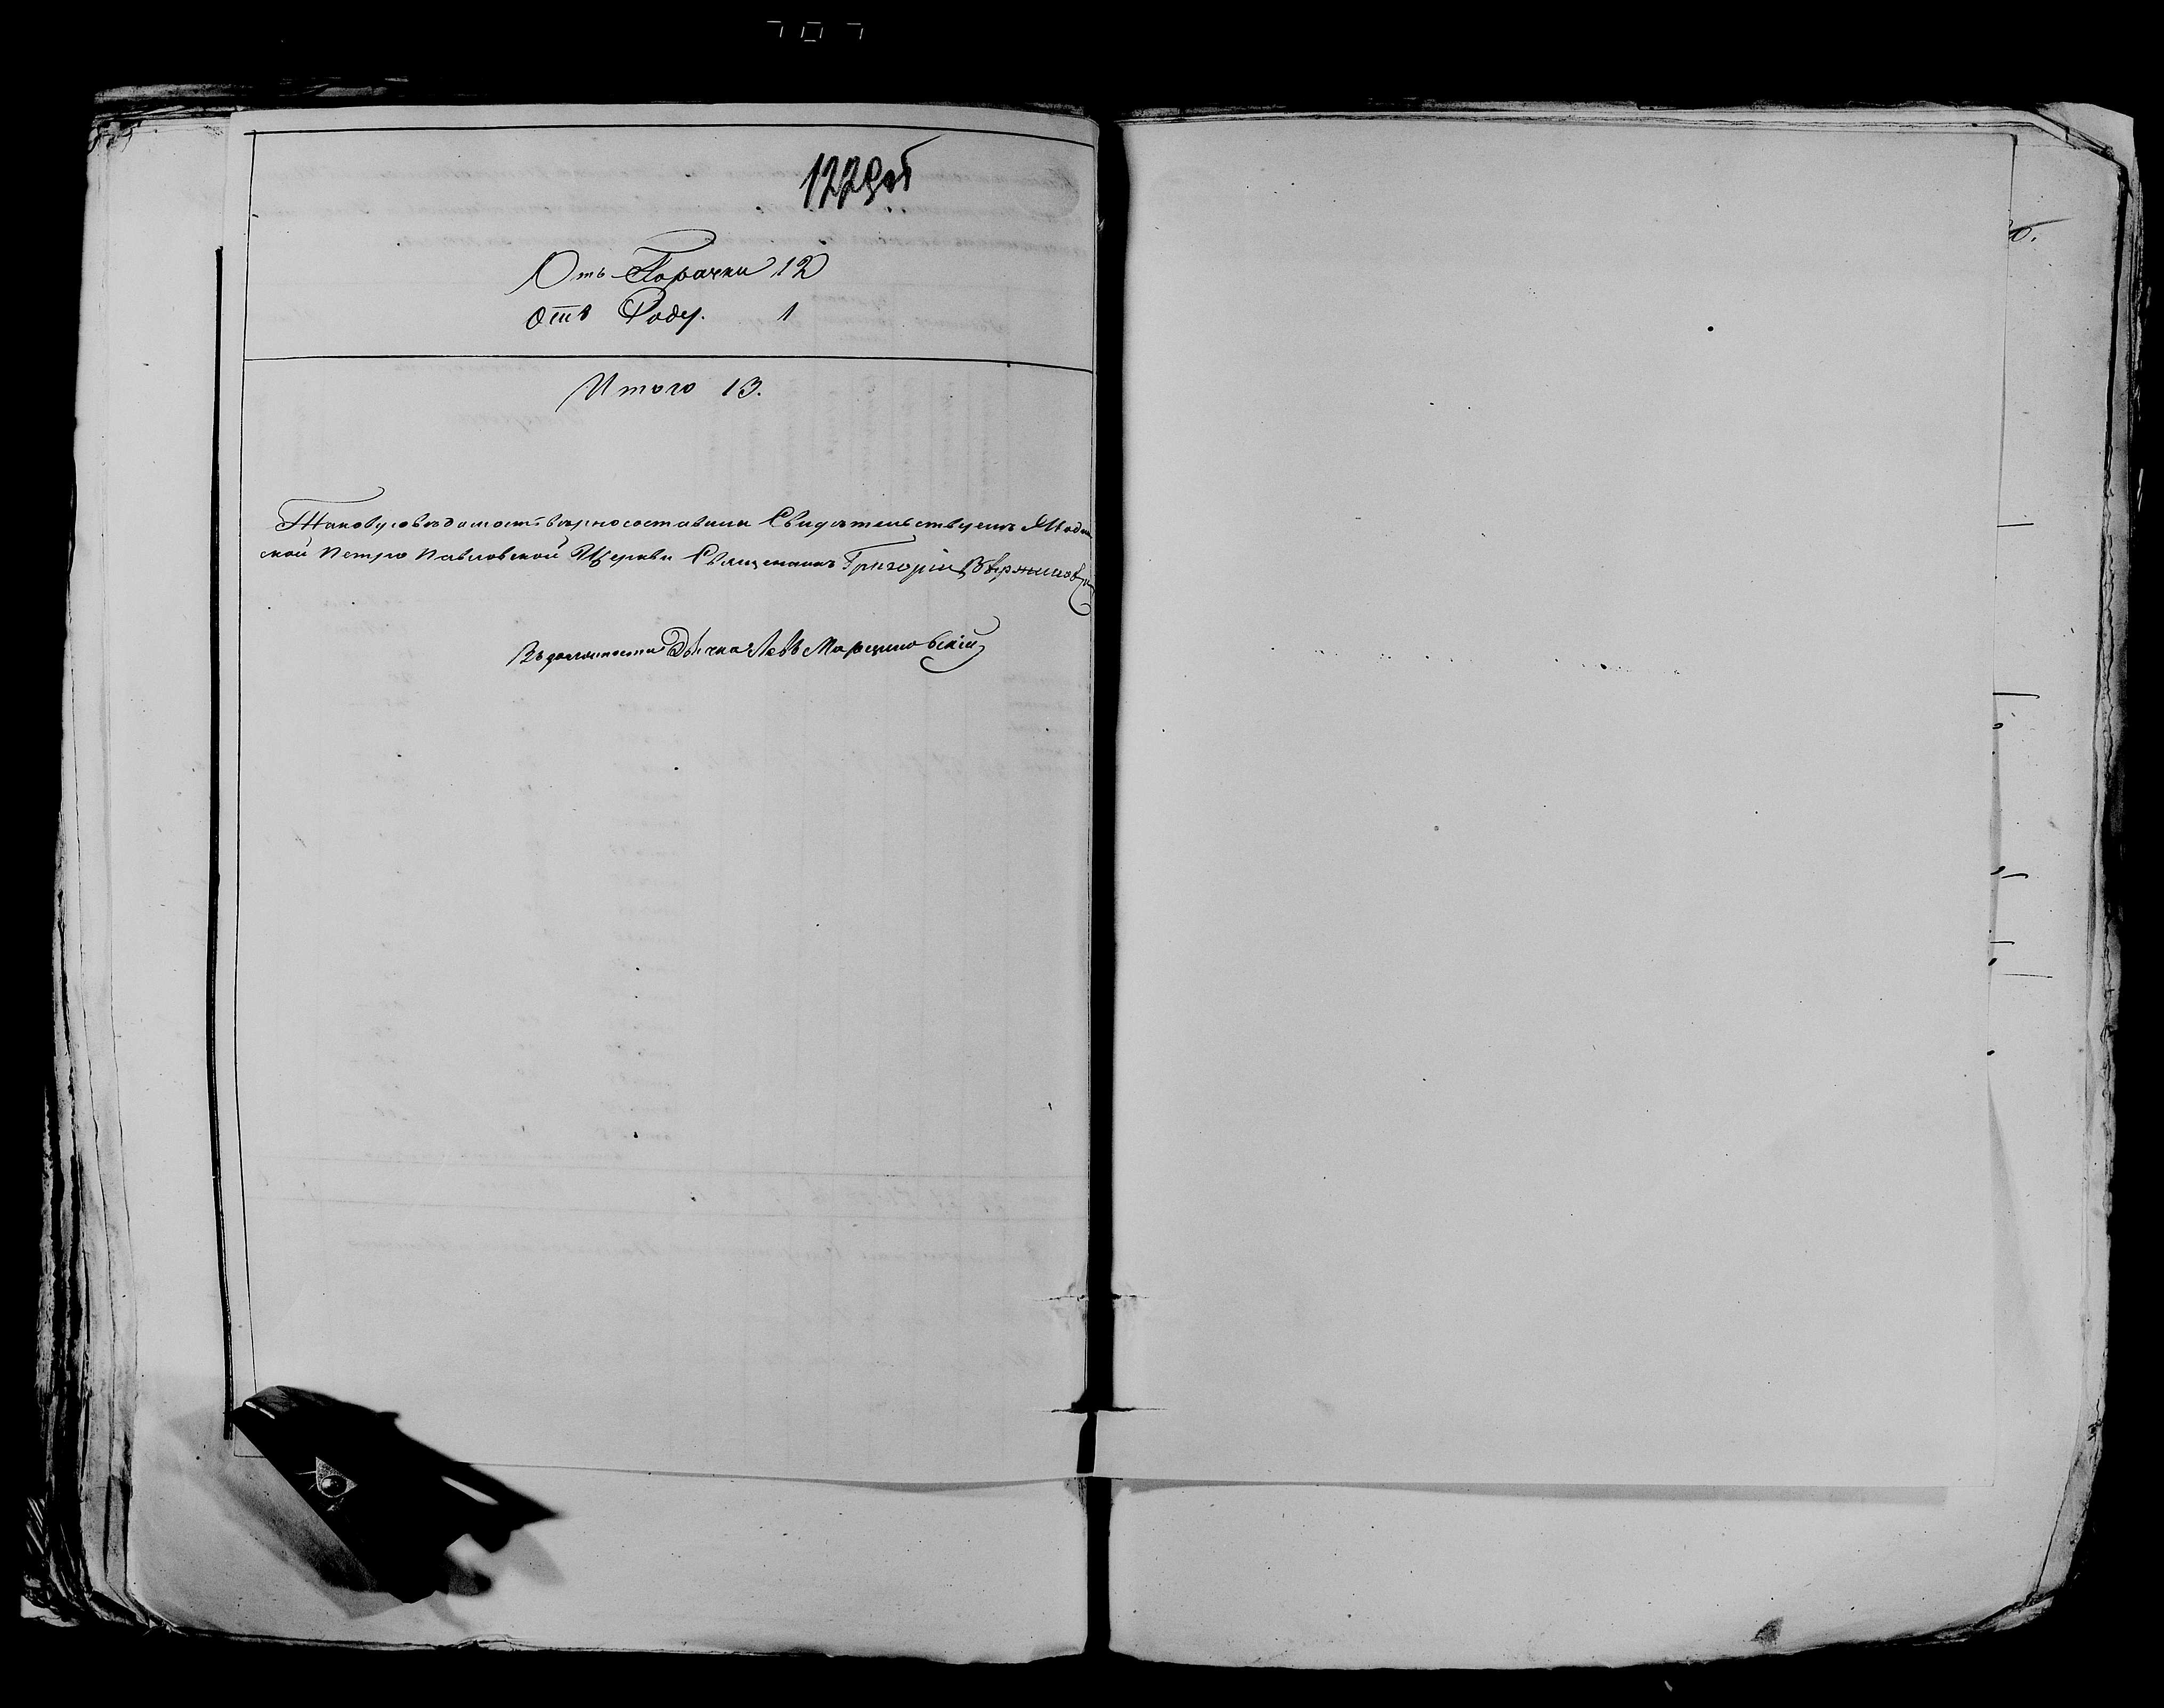 707
1229об
Отъ Горячки 12
Отъ Роду. 1
Итого 13.
Таковую ведомость верно составили Свидетельствуемъ
ской Петро Павловской Церкви Священникъ Григорій
Въ должности Дьячка Левъ Марциновскій